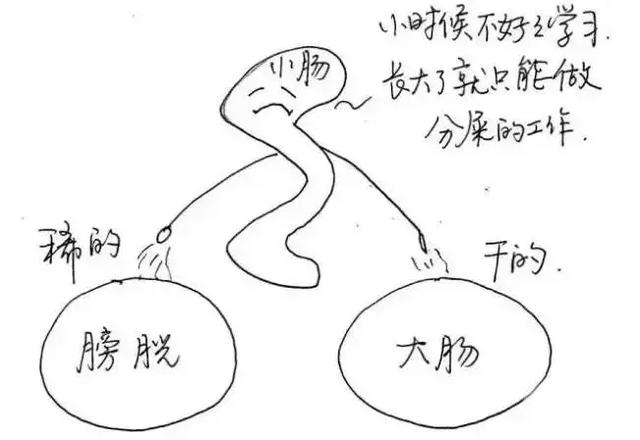 小肠
小时候不好好学习.
长大了就只能做
分屎的工作.
稀的
干的.
膀胱
大肠